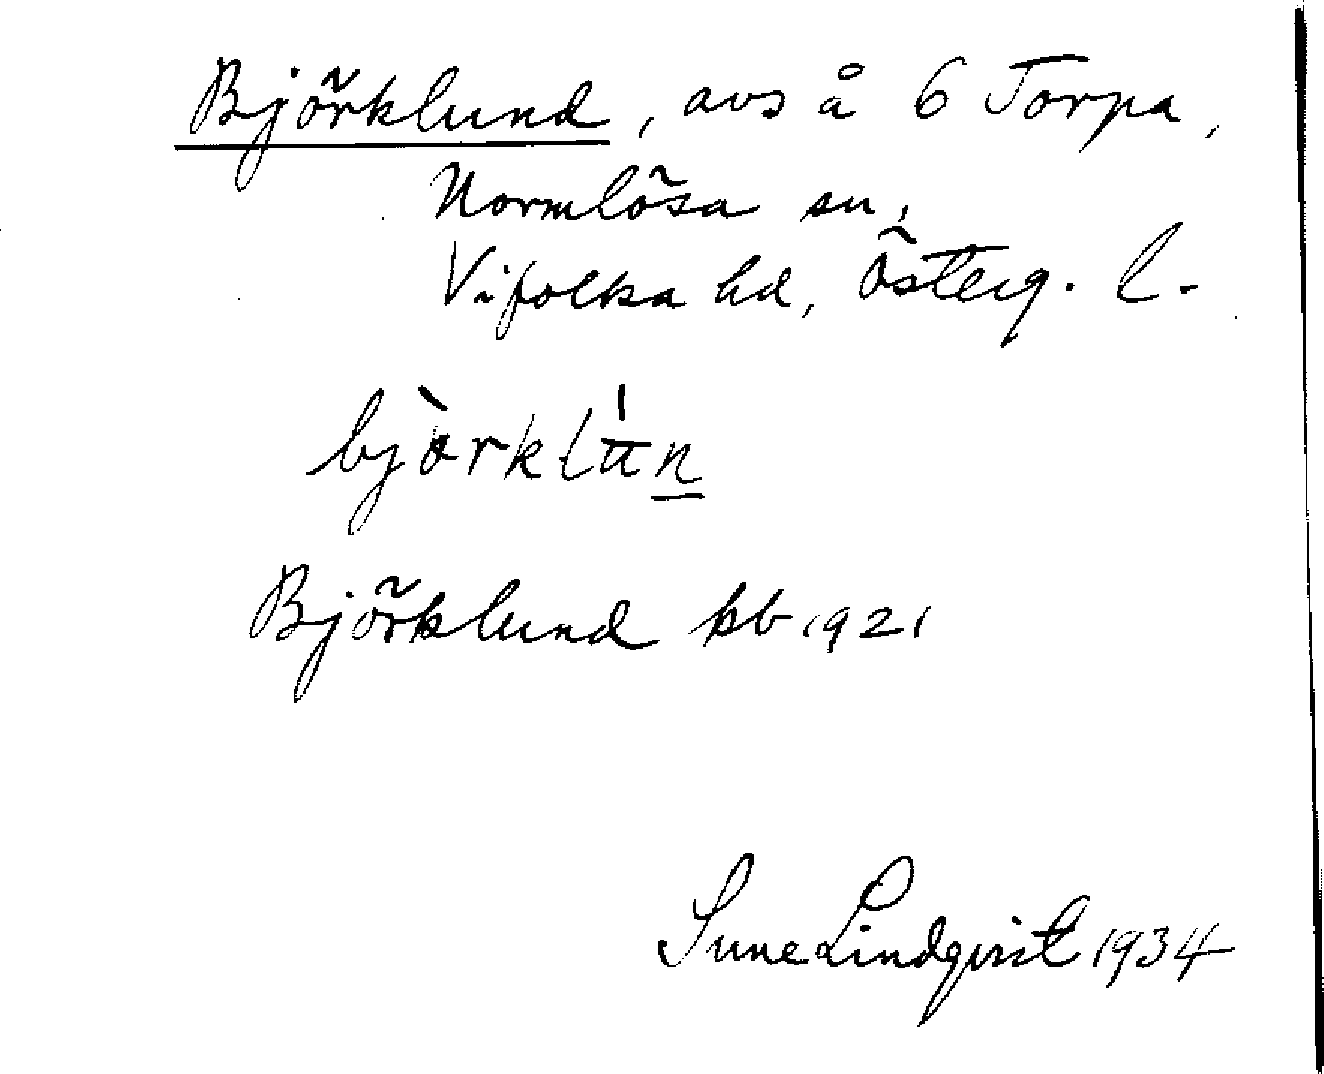 Björklund, avs å 6 Torpa,
Normlösa sn,
Vifolka hd, Österg. l.
bjòrklún
Björklund kb 1921
Sune Lindqvist 1934